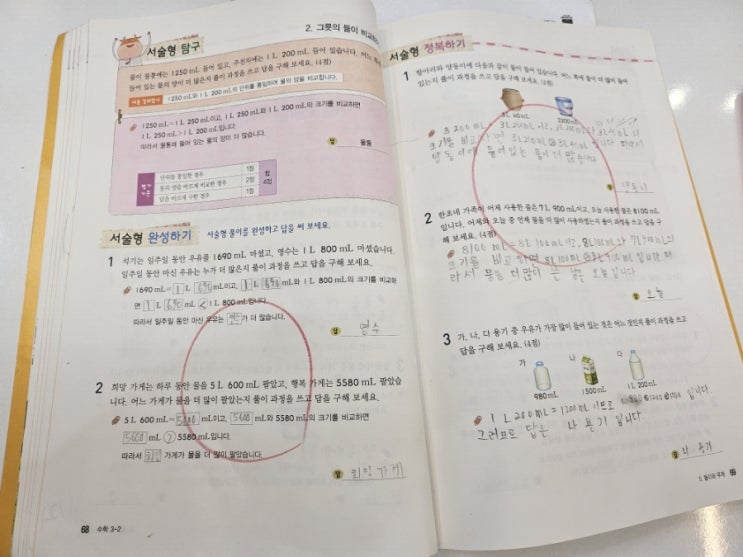 2. 그릇의 들이 비교하
서술형 탐구
물이 물통에는 1250 mL 들어 있고, 주전자에는 1 L 200 mL 들어 있습니다.
들어 있는 물의 양이 더 많은지 풀이 과정을 쓰고 답을 구해 보세요. (4점)
1250 mL와 1 L 200 mL의 단위를 통일하여 물의 양을 비교합니다.
1250 mL=1 L 250 mL이고, 1 L 250 mL와 1 L 200 mL의 크기를 비교하면
1 L 250 mL>1 L 200 mL입니다.
따라서 물통에 들어 있는 물의 양이 더 많습니다.
답 물통
단위를 통일한 경우 1점
들이 양을 바르게 비교한 경우 2점
답을 바르게 구한 경우 1점
합 4점
서술형 완성하기 서술형 풀이를 완성하고 답을 써 보세요.
1 석기는 일주일 동안 우유를 1690 mL 마셨고, 영수는 1 L 800 mL 마셨습니다.
일주일 동안 마신 우유는 누가 더 많은지 풀이 과정을 쓰고 답을 구해 보세요.
1690 mL=1 L 690 mL이고, 1 L 690 mL와 1 L 800 mL의 크기를 비교하
면 1 L 690 mL < 1 L 800 mL입니다.
따라서 일주일 동안 마신 우유는 영수가 더 많습니다.
답 영수
2 희망 가게는 하루 동안 물을 5 L 600 mL 팔았고, 행복 가게는 5580 mL 팔았습
니다. 어느 가게가 물을 더 많이 팔았는지 풀이 과정을 쓰고 답을 구해 보세요.
5 L 600 mL=5600 mL이고, 5600 mL와 5580 mL의 크기를 비교하면
5600 mL > 5580 mL입니다.
따라서 희망 가게가 물을 더 많이 팔았습니다.
답 희망가게
68 수학 3-2
서술형 정복하기
1 항아리와 양동이에 다음과 같이 물이 들어 있습니다. 어느 쪽에 물이 더 많이 들어
있는지 풀이 과정을 쓰고 답을 구해 보세요. (4점)
3 L 40 mL
3200 mL
3200 mL
양동이에 들어있는 물이 더 많습니다
답 양동이
2 한초네 가족이 어제 사용한 물은 7 L 900 mL이고, 오늘 사용한 물은 8100 mL
입니다. 어제와 오늘 중 언제 물을 더 많이 사용하였는지 풀이 과정을 쓰고 답을 구
해 보세요. (4점)
8100 mL = 8L 100mL이고, 8L 100mL와 7L 900mL의
크기를 비교하면
라서 물을 더 많이 쓴 날은 오늘입니다
답 오늘
3 가, 나, 다 용기 중 우유가 가장 많이 들어 있는 것은 어느 것인지 풀이 과정을 쓰고
답을 구해 보세요. (4점)
가 나 다
980 mL 1500 mL 1 L 200 mL
1L 200mL=1200mL 이므로 입니다.
그러므로 답은 나 용기 입니다
답 나 용기
5. 들이와 무게 69